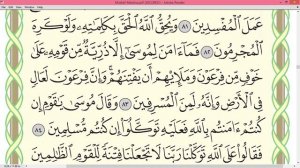 عَمَلَ ٱلْمُفْسِدِينَ ٨١ وَيُحِقُّ ٱللَّهُ ٱلْحَقَّ بِكَلِمَٰتِهِۦ وَلَوْ كَرِهَ
ٱلْمُجْرِمُونَ ٨٢ فَمَآ ءَامَنَ لِمُوسَىٰٓ إِلَّا ذُرِّيَّةٌ مِّن قَوْمِهِۦ عَلَىٰ
خَوْفٍ مِّن فِرْعَوْنَ وَمَلَإِي۟هِمْ أَن يَفْتِنَهُمْ ۚ وَإِنَّ فِرْعَوْنَ لَعَالٍ
فِى ٱلْأَرْضِ وَإِنَّهُۥ لَمِنَ ٱلْمُسْرِفِينَ ٨٣ وَقَالَ مُوسَىٰ يَٰقَوْمِ إِن
كُنتُمْ ءَامَنتُم بِٱللَّهِ فَعَلَيْهِ تَوَكَّلُوٓا۟ إِن كُنتُم مُّسْلِمِينَ ٨٤
فَقَالُوا۟ عَلَى ٱللَّهِ تَوَكَّلْنَا رَبَّنَا لَا تَجْعَلْنَا فِتْنَةً لِّلْقَوْمِ ٱلظَّٰلِمِينَ